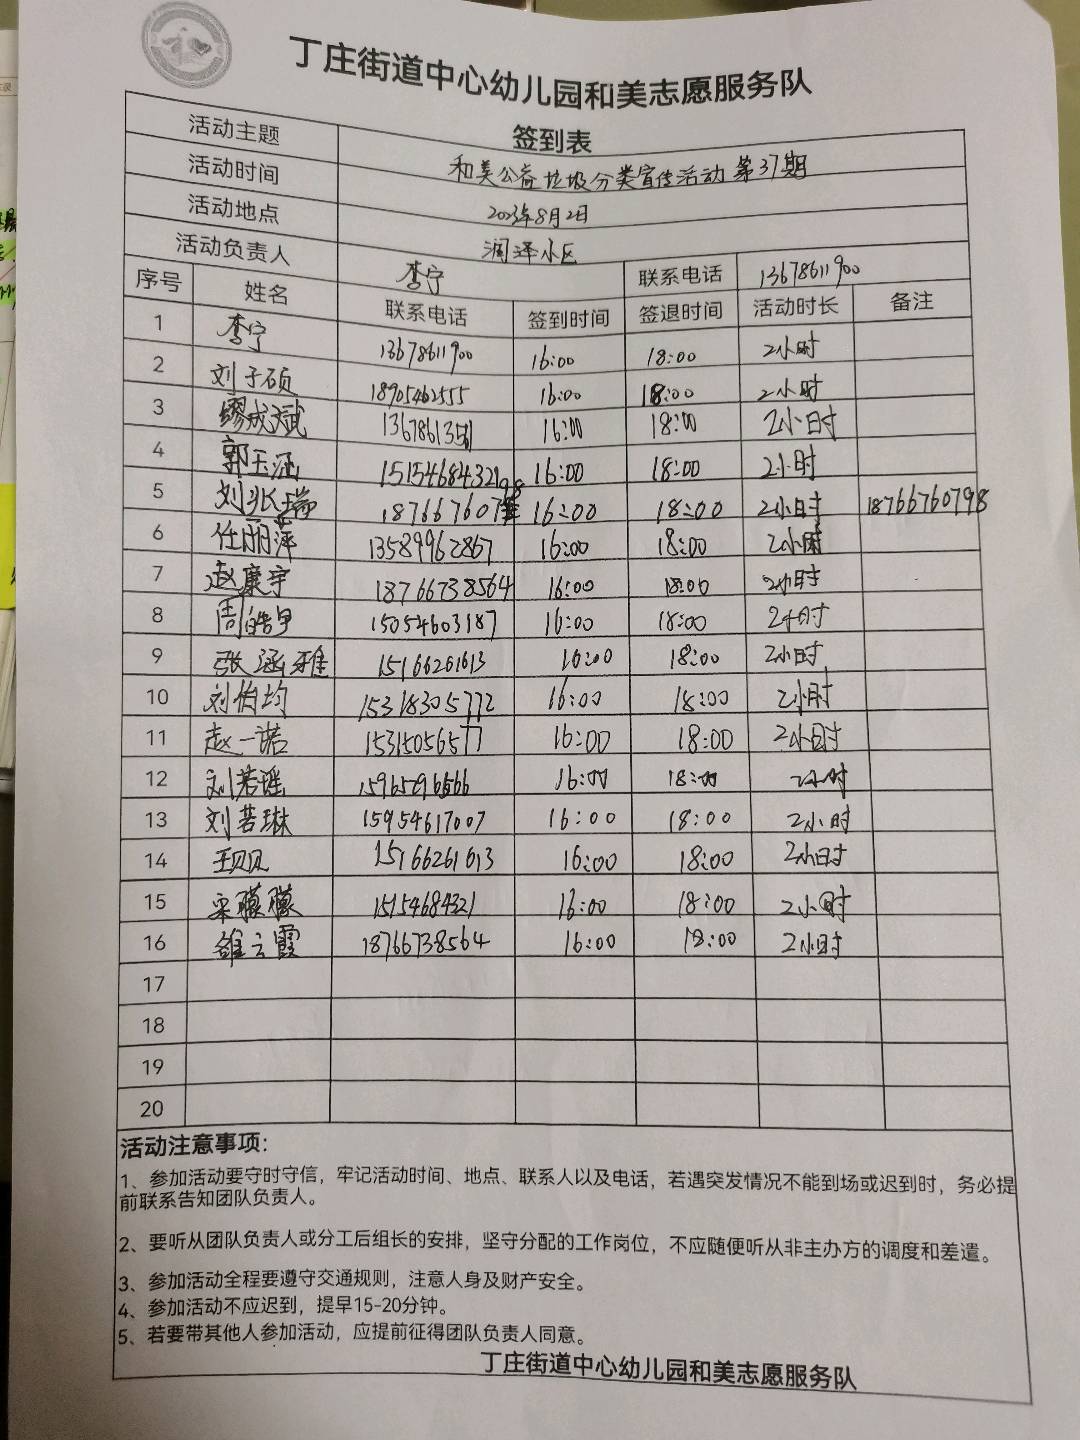 丁庄街道中心幼儿园和美志愿服务队
签到表
活动主题 和美公益垃圾分类宣传活动第37期
活动时间 2023年8月2日
活动地点 润泽小区
活动负责人 李宁 联系电话 13678611900
序号 姓名 联系电话 签到时间 签退时间 活动时长 备注
1 李宁 13678611900 16:00 18:00 2小时
2 刘子硕 18905462555 16:00 18:00 2小时
3 缪成斌 16:00 18:00 2小时
4 郭玉涵 15154684321 16:00 18:00 2小时
5 刘张瑞 16:00 18:00 2小时 18766760798
6 任丽萍 13589962867 16:00 18:00 2小时
7 赵康宇 18766738564 16:00 18:00 2小时
8 周皓 15054603187 16:00 18:00 2小时
9 张涵雅 15166261613 16:00 18:00 2小时
10 刘怡均 15318305772 16:00 18:00 2小时
11 赵一诺 15315056577 16:00 18:00 2小时
12 刘若瑶 16:00 18:00 2小时
13 刘若琳 15954617007 16:00 18:00 2小时
14 王贝贝 15166261613 16:00 18:00 2小时
15 朦朦 15154684321 16:00 18:00 2小时
16 云霞 18766738564 16:00 18:00 2小时
17
18
19
20
活动注意事项:
1、参加活动要守时守信，牢记活动时间、地点、联系人以及电话，若遇突发情况不能到场或迟到时，务必提
前联系告知团队负责人。
2、要听从团队负责人或分工后组长的安排，坚守分配的工作岗位，不应随便听从非主办方的调度和差遣。
3、参加活动全程要遵守交通规则，注意人身及财产安全。
4、参加活动不应迟到，提早15-20分钟。
5、若要带其他人参加活动，应提前征得团队负责人同意。
丁庄街道中心幼儿园和美志愿服务队